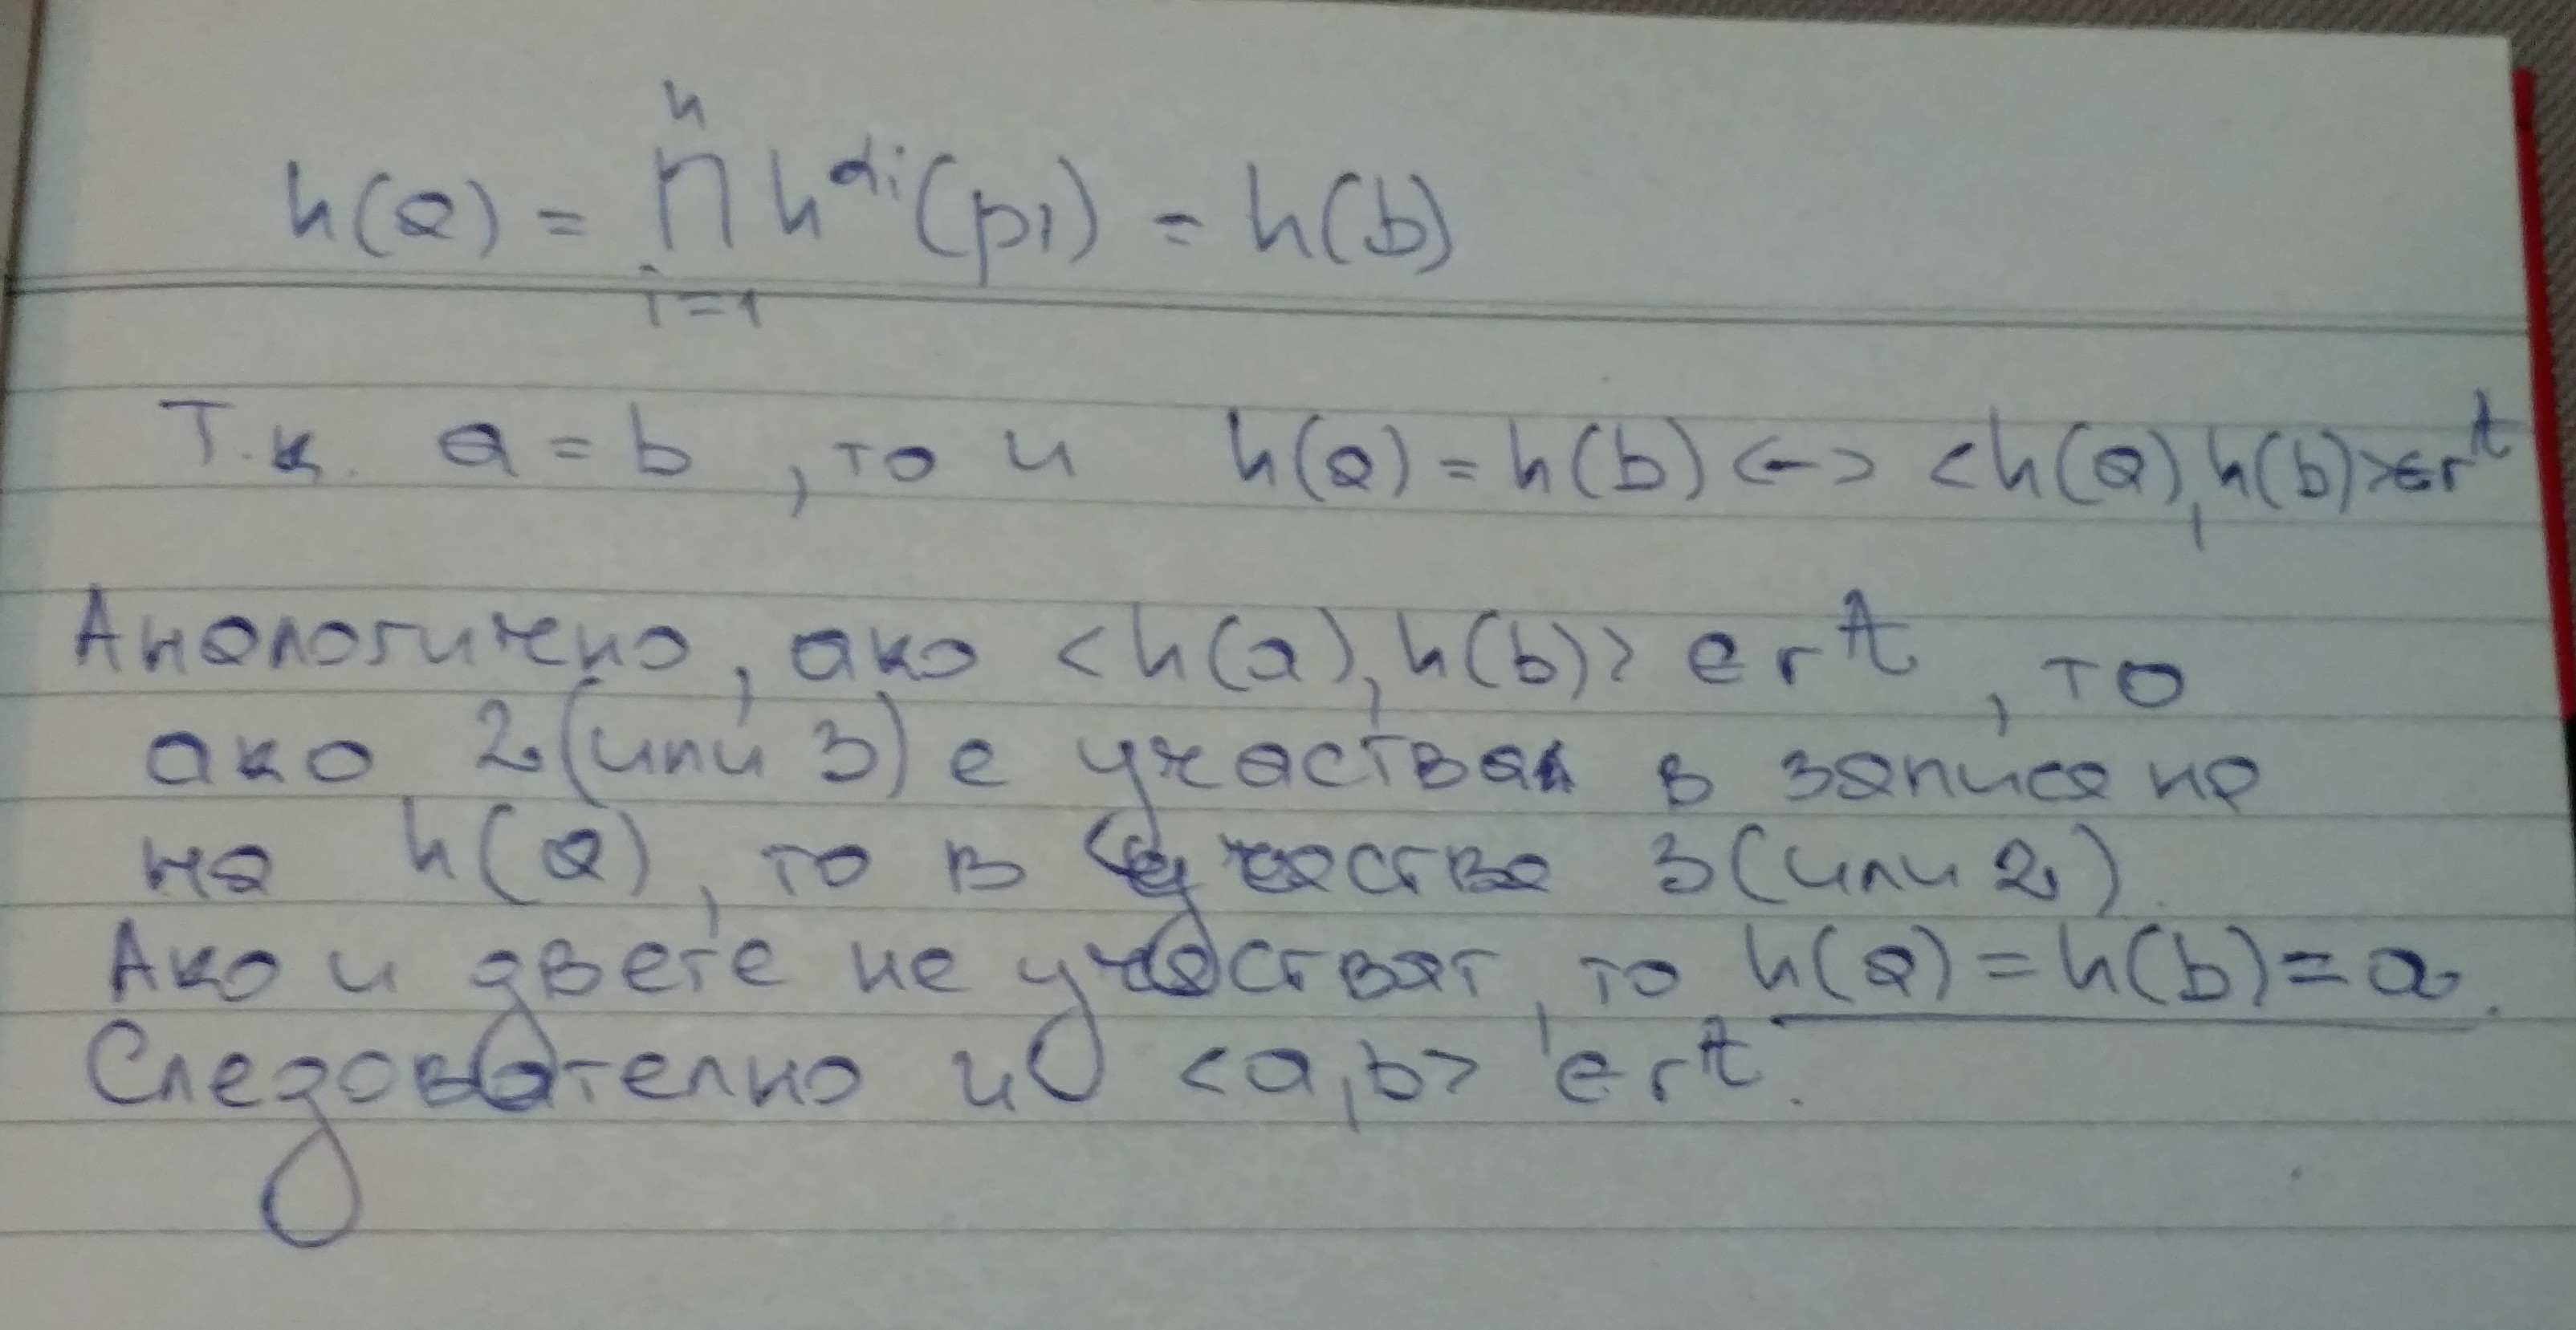 h(a) = ∏ⁿᵢ₌₁ h^αi (pi) = h(b)
Т.к. a = b , то и h(a) = h(b) <-> <h(a), h(b)> ∈ r^A
Аналогично, ако <h(a), h(b)> ∈ r^A , то
ако 2 (или 3) е участвал в записа на
на h(a), то в участва 3 (или 2).
Ако и двете не участват, то h(a) = h(b) = a.
Следователно и <a, b> ∈ r^A.